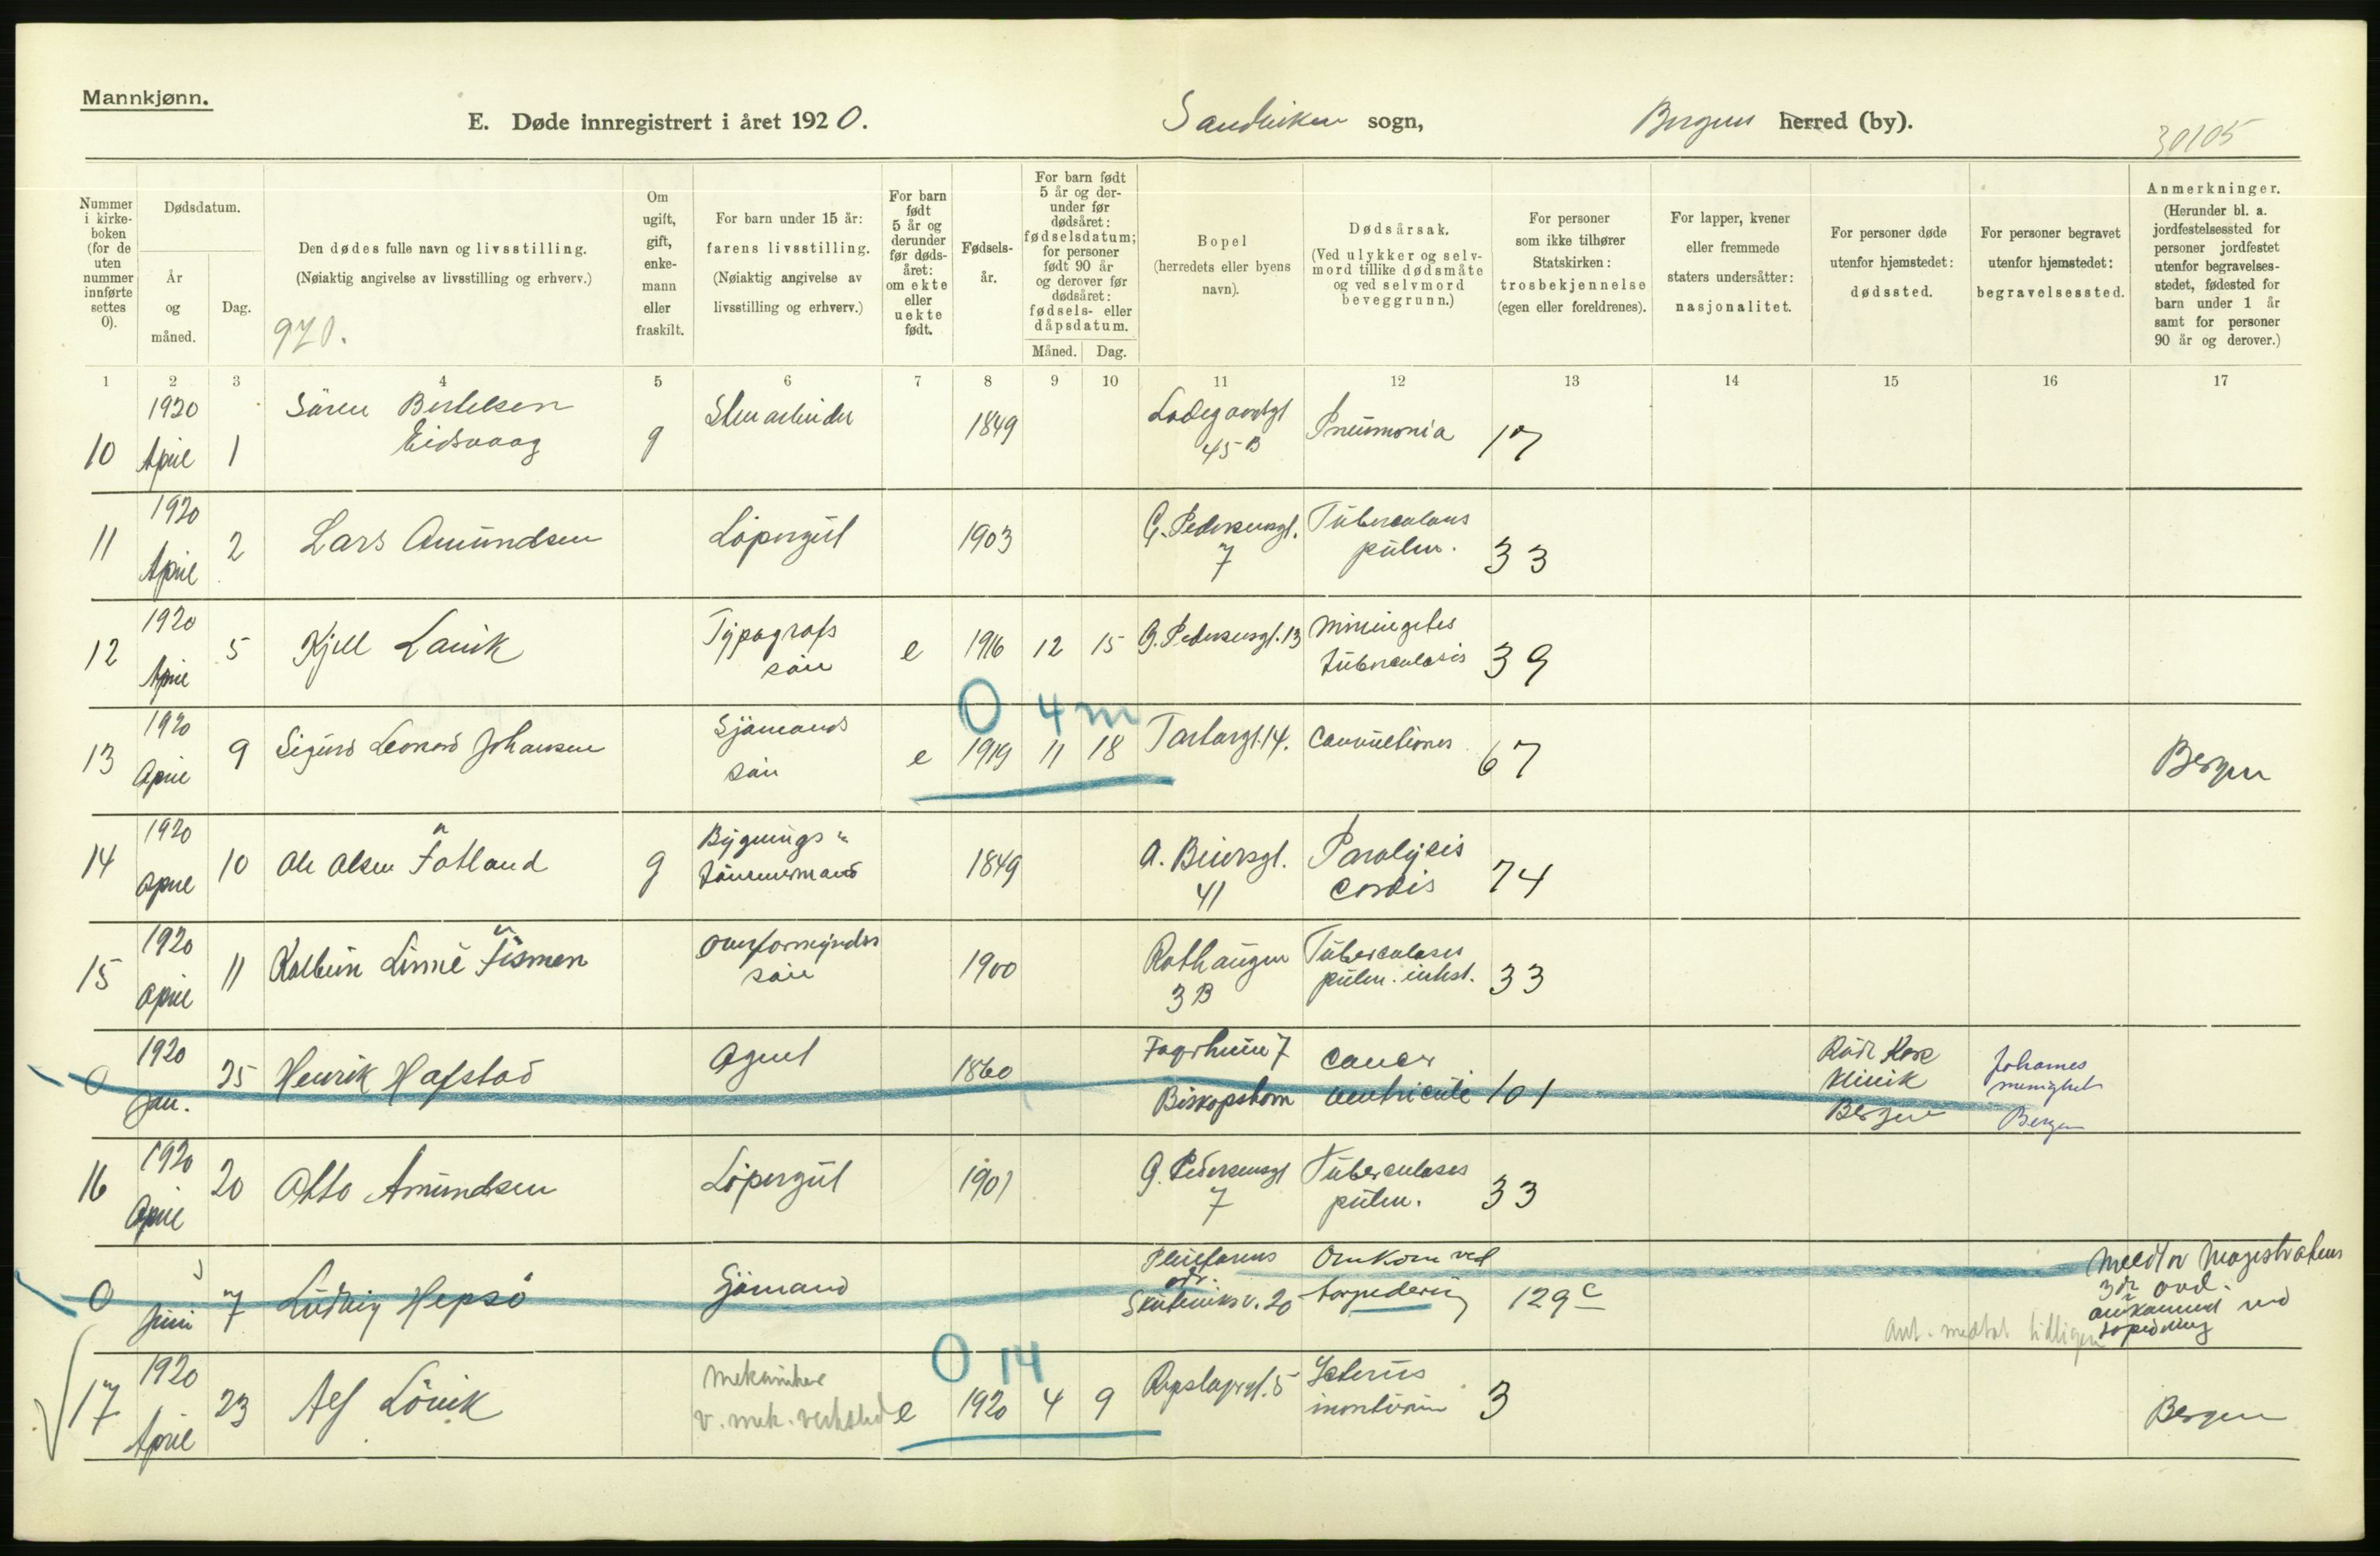 Mannkjønn.
E. Døde innregistrert i året 1920. Sandviken sogn, Bergens herred (by).
30105
Nummer i kirkeboken (for de uten nummer innførte settes 0).
Dødsdatum.
År og måned.
Dag.
Den dødes fulle navn og livsstilling.
(Nøiaktig angivelse av livsstilling og erhverv.)
920.
Om ugift, gift, enkemann eller fraskilt.
For barn under 15 år: farens livsstilling.
(Nøiaktig angivelse av livsstilling og erhverv.)
For barn født 5 år og derunder før dødsåret: om ekte eller uekte født.
Fødselsår.
For barn født 5 år og derunder før dødsåret: fødselsdatum; for personer født 90 år og derover før dødsåret: fødsels- eller dåpsdatum.
Måned. Dag.
Bopel
(herredets eller byens navn).
Dødsårsak.
(Ved ulykker og selvmord tillike dødsmåte og ved selvmord beveggrunn.)
For personer som ikke tilhører Statskirken: trosbekjennelse (egen eller foreldrenes).
For lapper, kvener eller fremmede staters undersåtter: nasjonalitet.
For personer døde utenfor hjemstedet: dødssted.
For personer begravet utenfor hjemstedet: begravelsessted.
Anmerkninger.
(Herunder bl. a. jordfestelsessted for personer jordfestet utenfor begravelsesstedet, fødested for barn under 1 år samt for personer 90 år og derover.)
1 2 3 4 5 6 7 8 9 10 11 12 13 14 15 16 17
10 1920 April 1 Sören Bertelsen Eidsvaag g Stenarbeider 1849 Ladegaardsgt 45 B Pneumonia 17
11 1920 April 2 Lars Amundsen Löpergut 1903 G. Pedersensgt. 7 Tuberculous pulm. 33
12 1920 April 5 Kjell Lauik Typografs sön e 1916 12 15 G. Pedersensgt. 13 Miningetes tuberculosis 39
0 4 m
13 1920 April 9 Sigurd Leonard Johansen Sjömands sön e 1919 11 18 Tartargt. 14. Convultiones 67 Bergen
14 1920 April 10 Ole Olsen Fotland g Bygnings tömmermand 1849 A. Beiersgt. 41 Paralysis cordis 74
15 1920 April 11 Kolbein Linné Fismen Overformynders sön 1900 Rothaugen 3 B Tuberculoses pulm. intest. 33
0 1920 Jan. 25 Henrik Hafstad Agent 1860 Fagerheim 7 Biskopshavn Cancer ventriculi 101 Röde Kors Klinik Bergen Johannes menighet Bergen
16 1920 April 20 Otto Amundsen Löpergut 1901 G. Pedersensgt 7 Tuberculoses pulm. 33
0 Juni 7 Ludvig Hepsö Sjömand Skuteviksv. 20 Omkom ved torpedering 129 c Meldt av Magistratens 3die avd. omkommet ved torpedering
Ant. medtat tidligere
0 14
17 1920 April 23 Alf Lövik Mekaniker v. mek. verksted e 1920 4 9 Repslagergt. 5 Icterus 3 Bergen